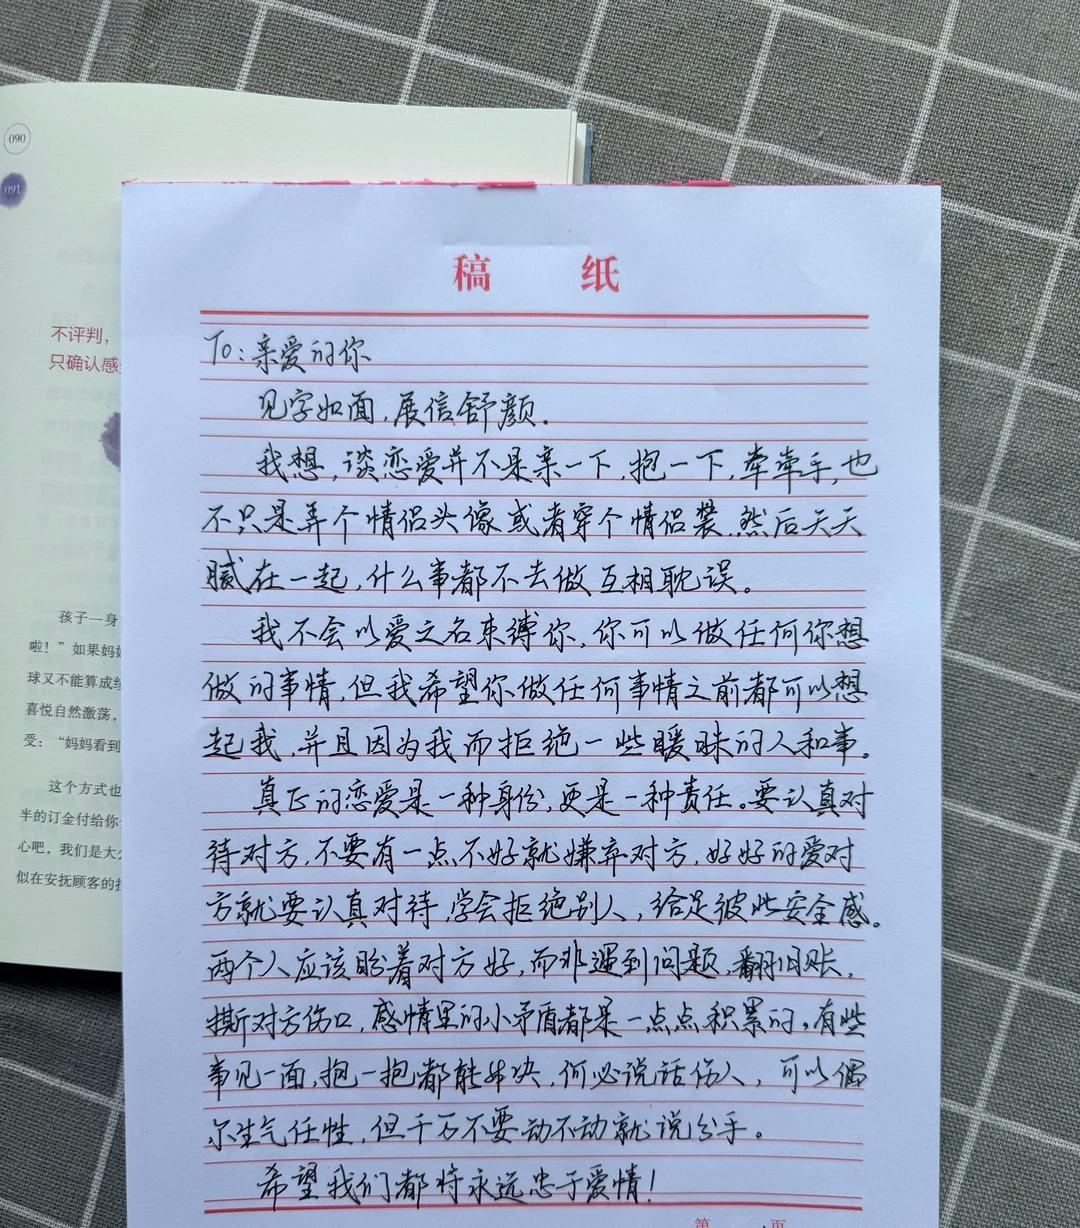 090
091
不评判，
只确认感
孩子一身
啦！”如果妈
球又不能算成
喜悦自然激荡，
受：“妈妈看到
这个方式也
半的订金付给你
心吧，我们是大
似在安抚顾客的
稿 纸
To：亲爱的你
见字如面，展信舒颜．
我想，谈恋爱并不是亲一下，抱一下，牵牵手，也
不只是弄个情侣头像或者穿个情侣装，然后天天
腻在一起，什么事都不去做互相耽误。
我不会以爱之名束缚你，你可以做任何你想
做的事情，但我希望你做任何事情之前都可以想
起我，并且因为我而拒绝一些暧昧的人和事。
真正的恋爱是一种身份，更是一种责任。要认真对
待对方，不要有一点不好就嫌弃对方，好好的爱对
方就要认真对待，学会拒绝别人，给足彼此安全感。
两个人应该盼着对方好，而非遇到问题，翻旧账，
撕对方伤口，感情里的小矛盾都是一点点积累的，有些
事见一面，抱一抱都能解决，何必说话伤人，可以偶
尔生气任性，但千万不要动不动就说分手。
希望我们都将永远忠于爱情！
第 页